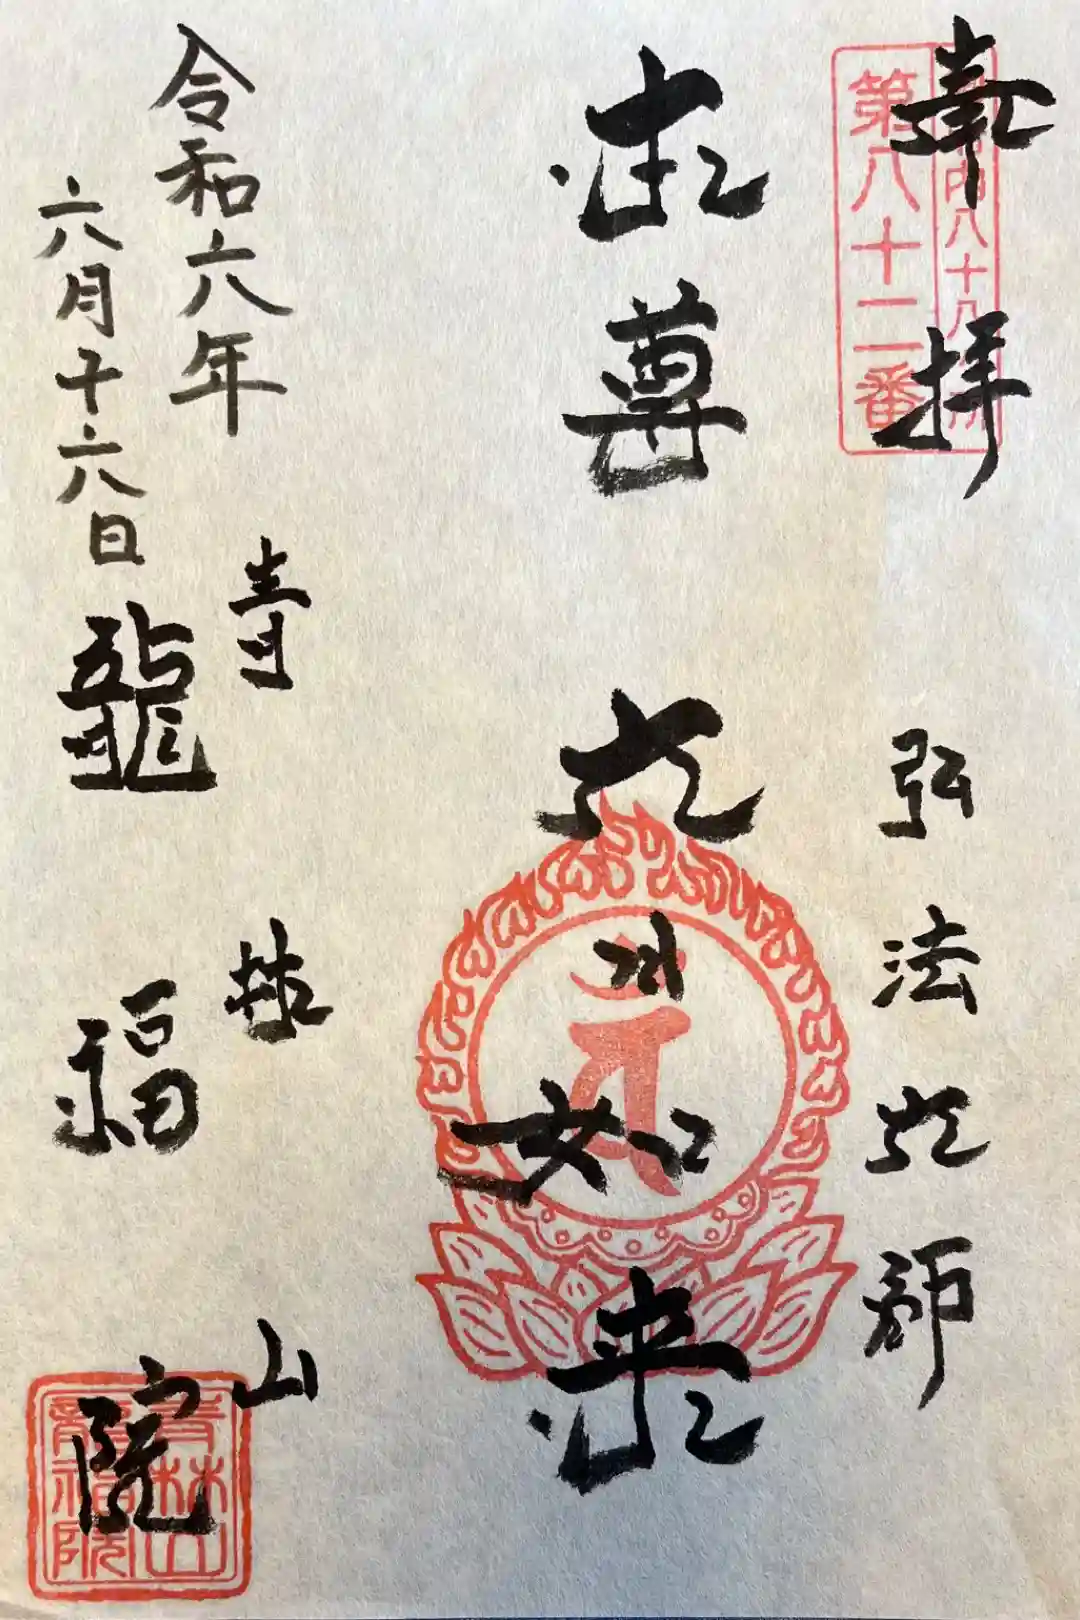 奉拝
内八十八
第八十二番
弘法大師
本尊
大日如来
令和六年
六月十六日
青林山
龍福院
青林山
龍福院